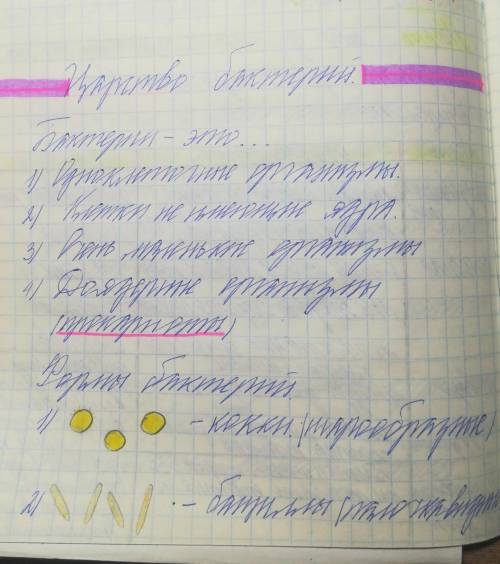 Царство бактерий.
Бактерии - это...
1) Одноклеточные организмы.
2) Клетки не имеющие ядра.
3) Очень маленькие организмы
4) Доядерные организмы
(прокариоты)
Формы бактерий.
1) - кокки. (шарообразные)
2) - бациллы (палочкавидные